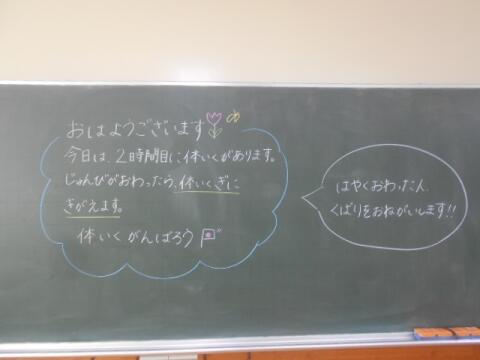 おはようございます
今日は、2時間目に体いくがあります。
じゅんびがおわったら、体いくぎに
きがえます。
体いくがんばろう
はやくおわった人、
くばりをおねがいします!!